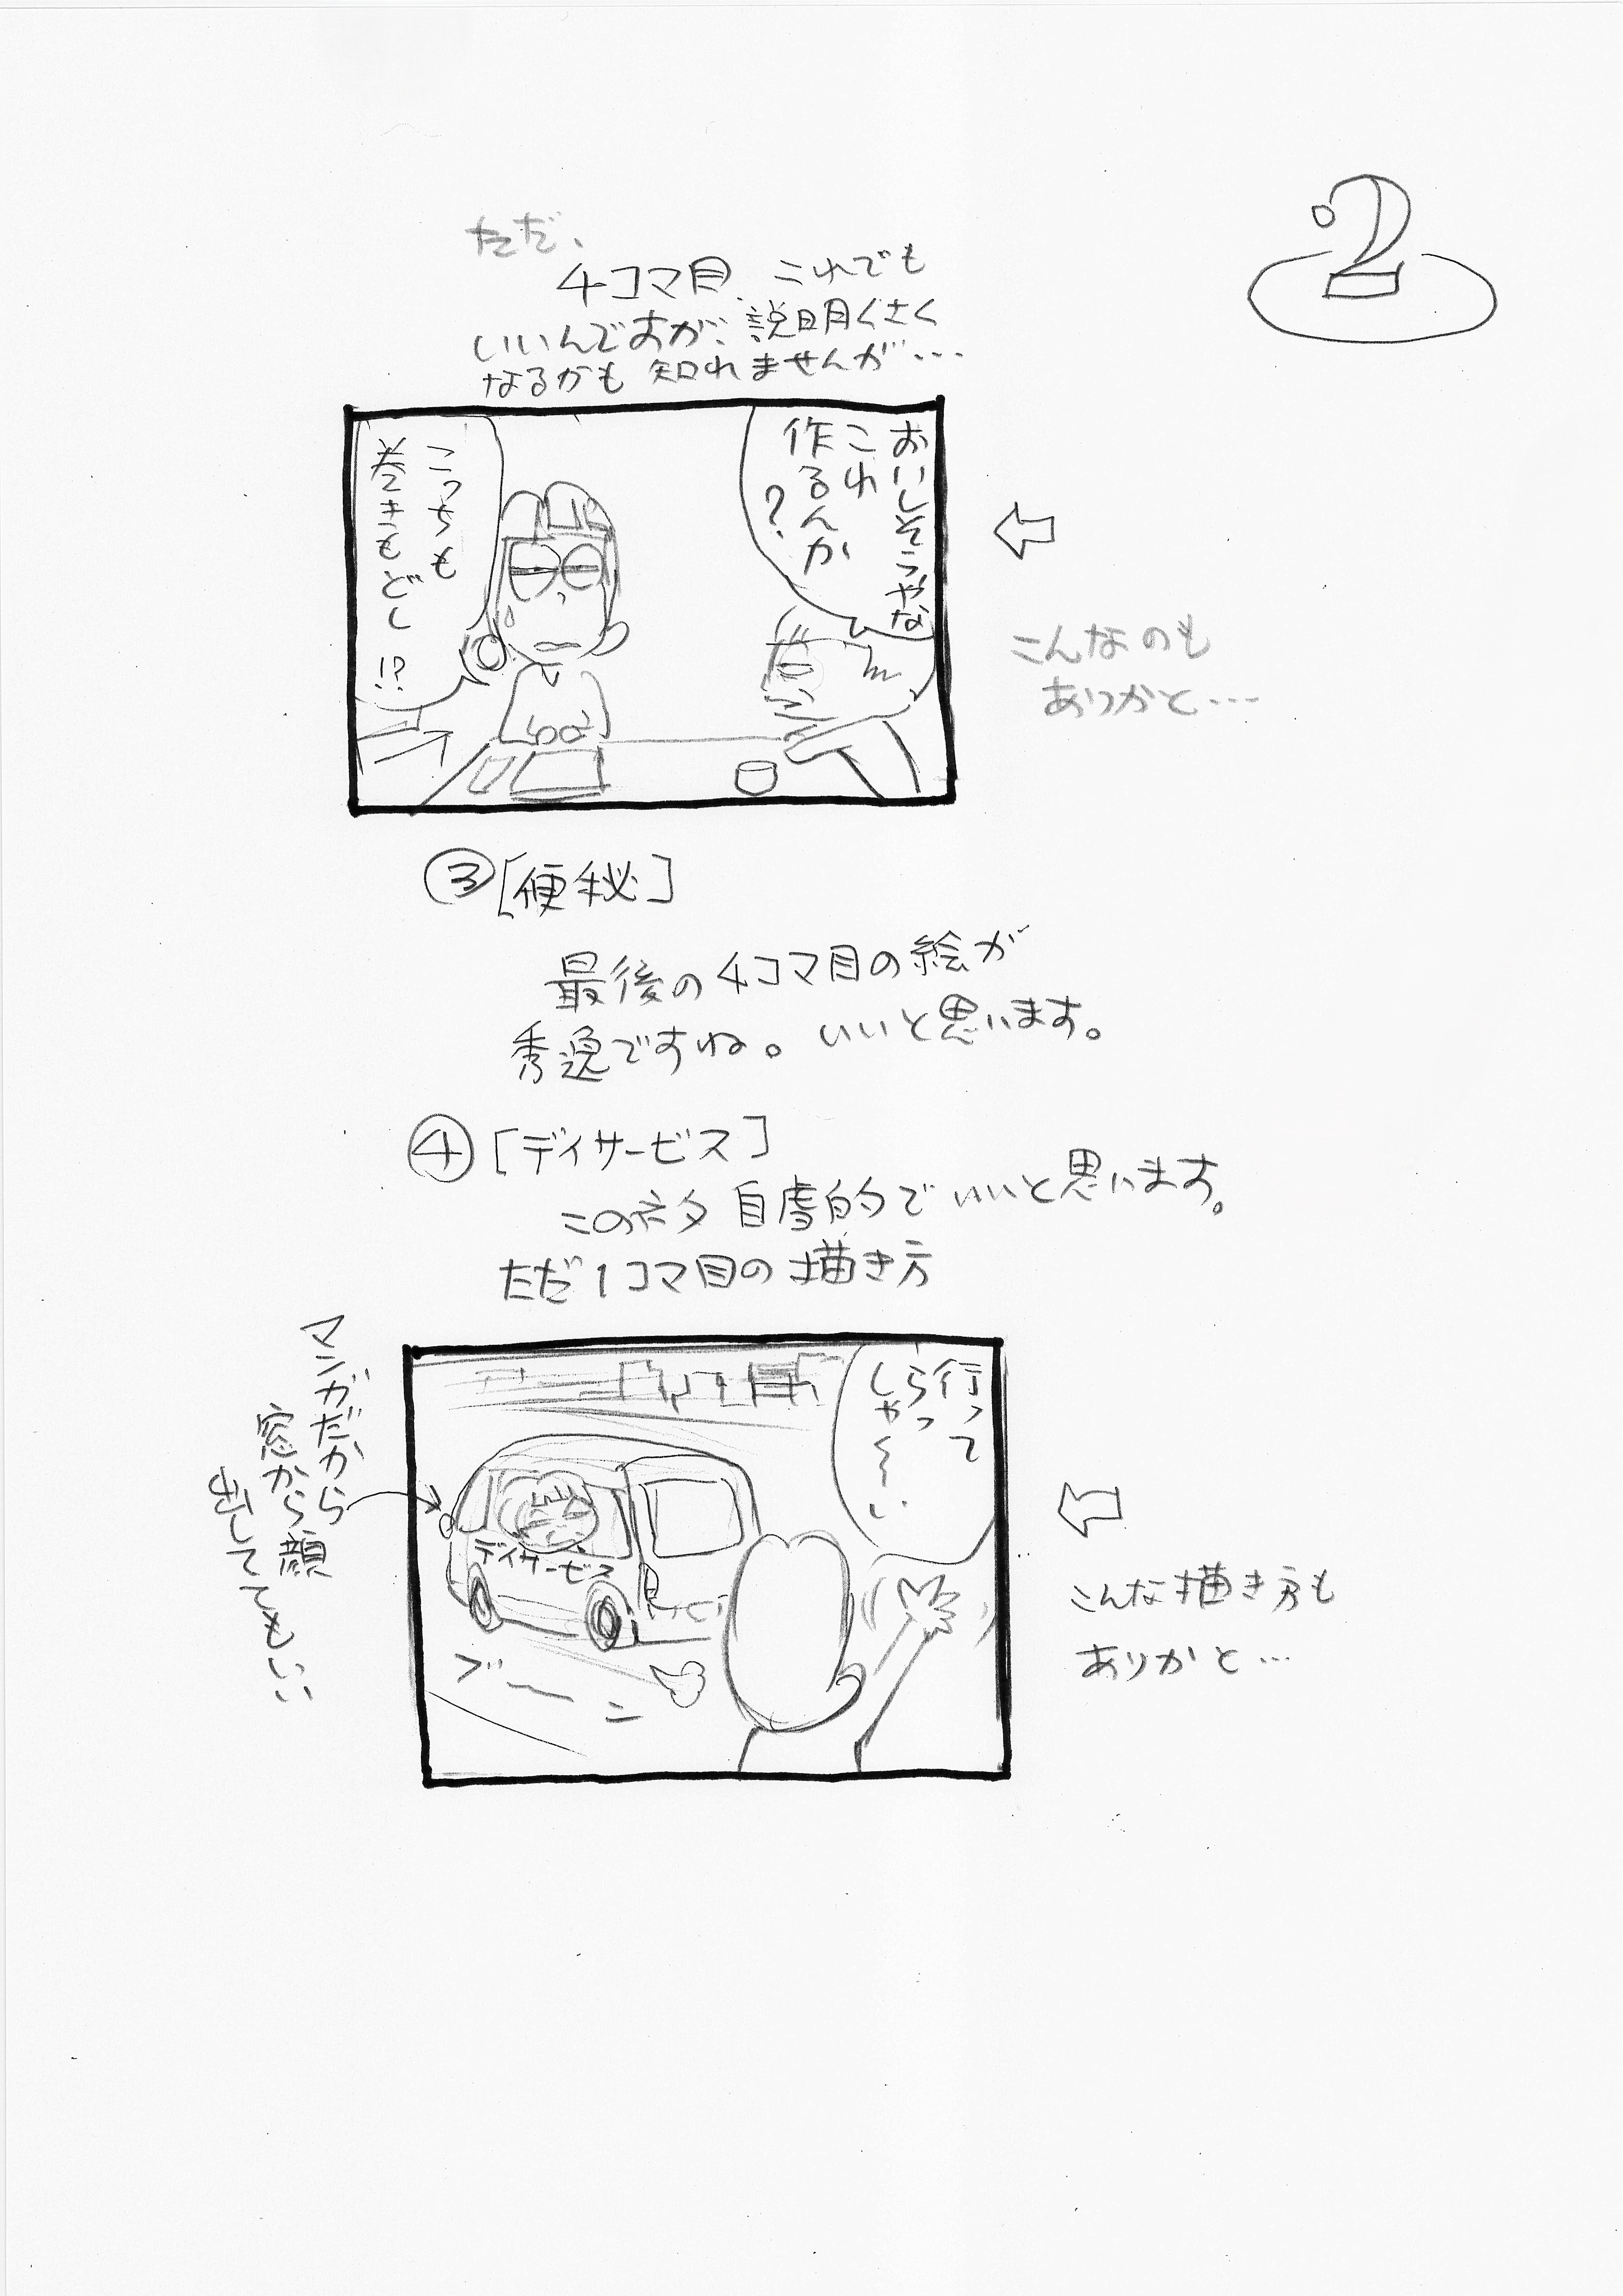 2
ただ、
4コマ目、これでも
いいんですが、説明くさく
なるかも知れませんが…
おいしそうやな
これ
作るんか
?
こっちも
巻きもどし!?
こんなのも
ありかと…
③[便秘]
最後の4コマ目の絵が
秀逸ですね。いいと思います。
④[デイサービス]
この文 自虐的でいいと思います。
ただ1コマ目の描き方
マンガだから
窓から顔
出しててもいい
行って
らっ
しゃ~い
デイサービス
ブーン
こんな描き方も
ありかと…